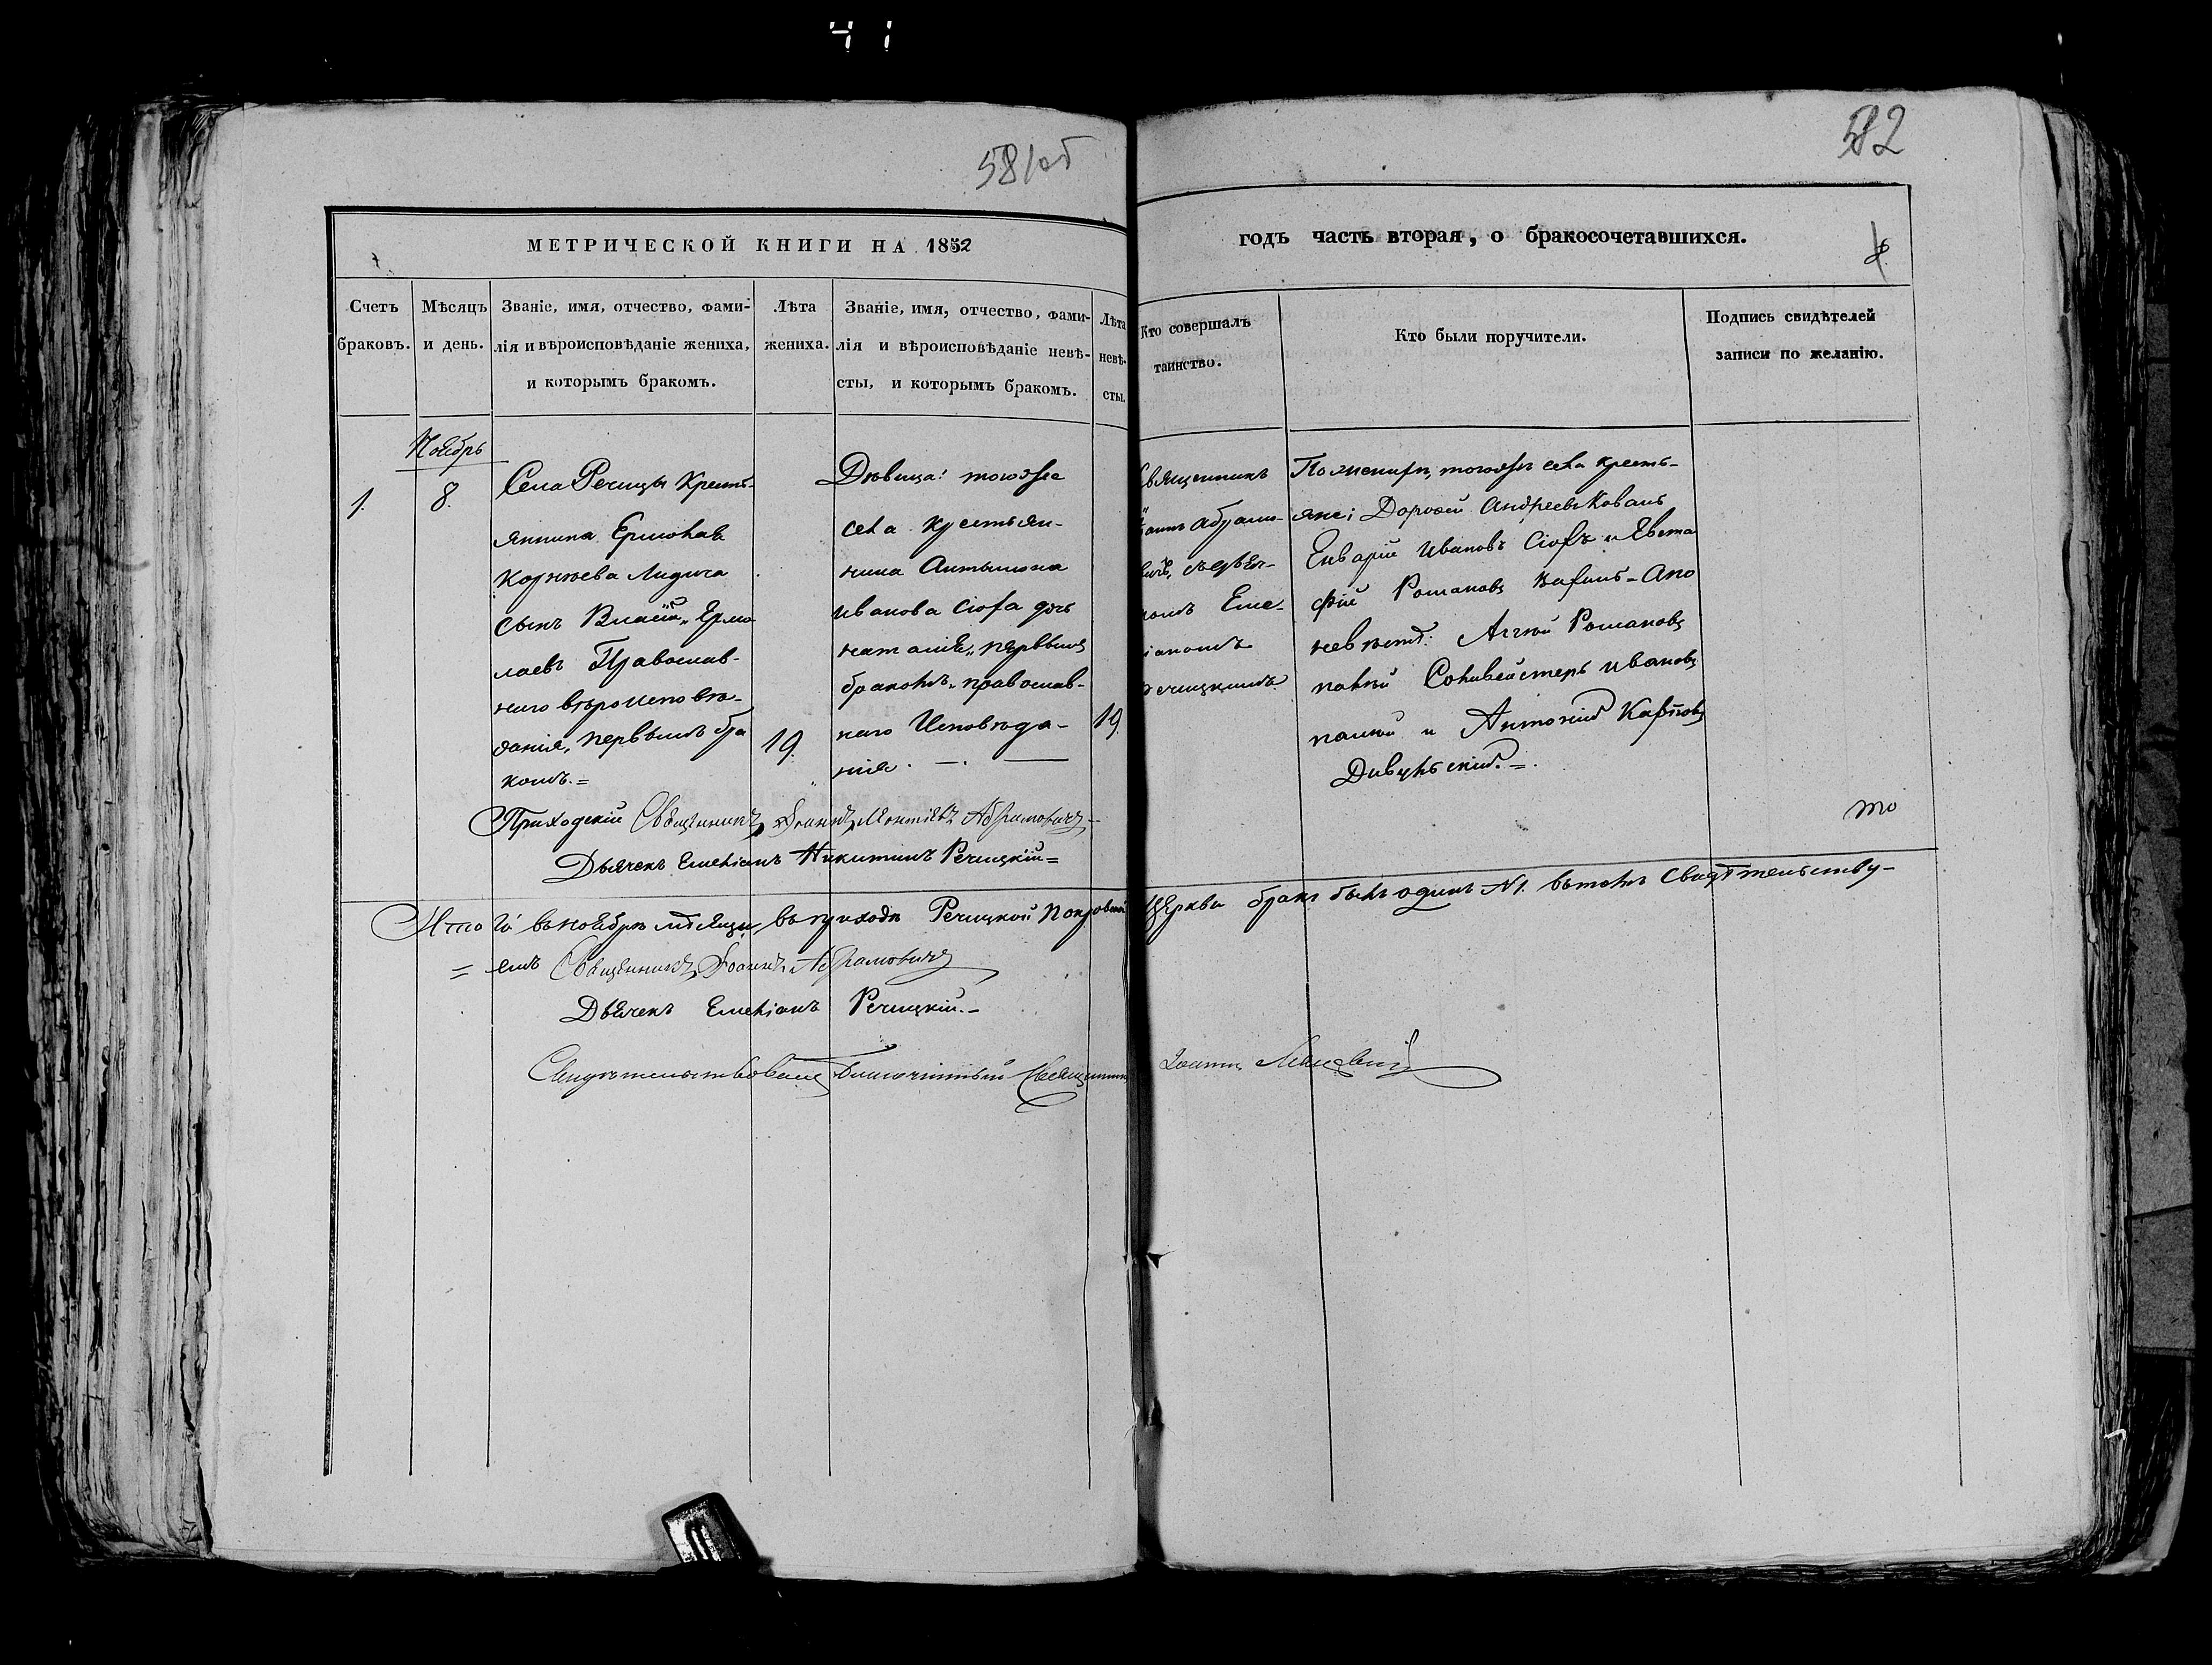 41
58 об
582
МЕТРИЧЕСКОЙ КНИГИ НА 1852
годъ часть вторая, о бракосочетавшихся.
Счетъ
браковъ.
Мѣсяцъ
и день.
Званіе, имя, отчество, фами-
лія и вѣроисповѣданіе жениха,
и которымъ бракомъ.
Лѣта
жениха.
Званіе, имя, отчество, фами-
лія и вѣроисповѣданіе невѣ-
сты, и которымъ бракомъ.
Лѣта
невѣ-
сты.
Кто совершалъ
таинство.
Кто были поручители.
Подпись свидѣтелей
записи по желанію.
Ноябрь
1.
8.
Села Речицы Кресть-
янина Ермолая
Корнѣева
сынъ Власій Ермо
лаевъ Православ-
наго вѣроисповѣ-
данія, первымъ бра
комъ.=
19.
Дѣвица: тогожъе
села крестьян-
нина
Иванова Сюра дочь
наталія, первымъ
бракомъ, православ-
наго Исповѣда-
нія. —. —
19.
Священникъ
Іоаннъ Абрамо-
вичъ, съ дьяч-
комъ Еме-
ліаномъ
Речицкимъ.
По женихѣ, тогожъ села кресть-
яне: Дорофей Андреевъ Коваль
Ивановъ Сюръ и Евста
фій Романовъ - А по
невѣстѣ: Романовъ
Ивановъ
и Антоній Карповъ
Приходскій Священникъ Іоаннъ Абрамовичъ
Дьячекъ Емеліанъ Никитинъ Речицкій=
Итого въ ноябрѣ мѣсяцѣ, въ приходѣ Речицкой Покровской Церкви бракъ былъ одинъ №1. въ томъ Свидѣтельству-
= емъ Священникъ, Іоаннъ Абрамовичъ
Дьячекъ Емеліанъ Речицкій.-
Свидѣтельствовалъ Благочинный Священникъ Іоаннъ